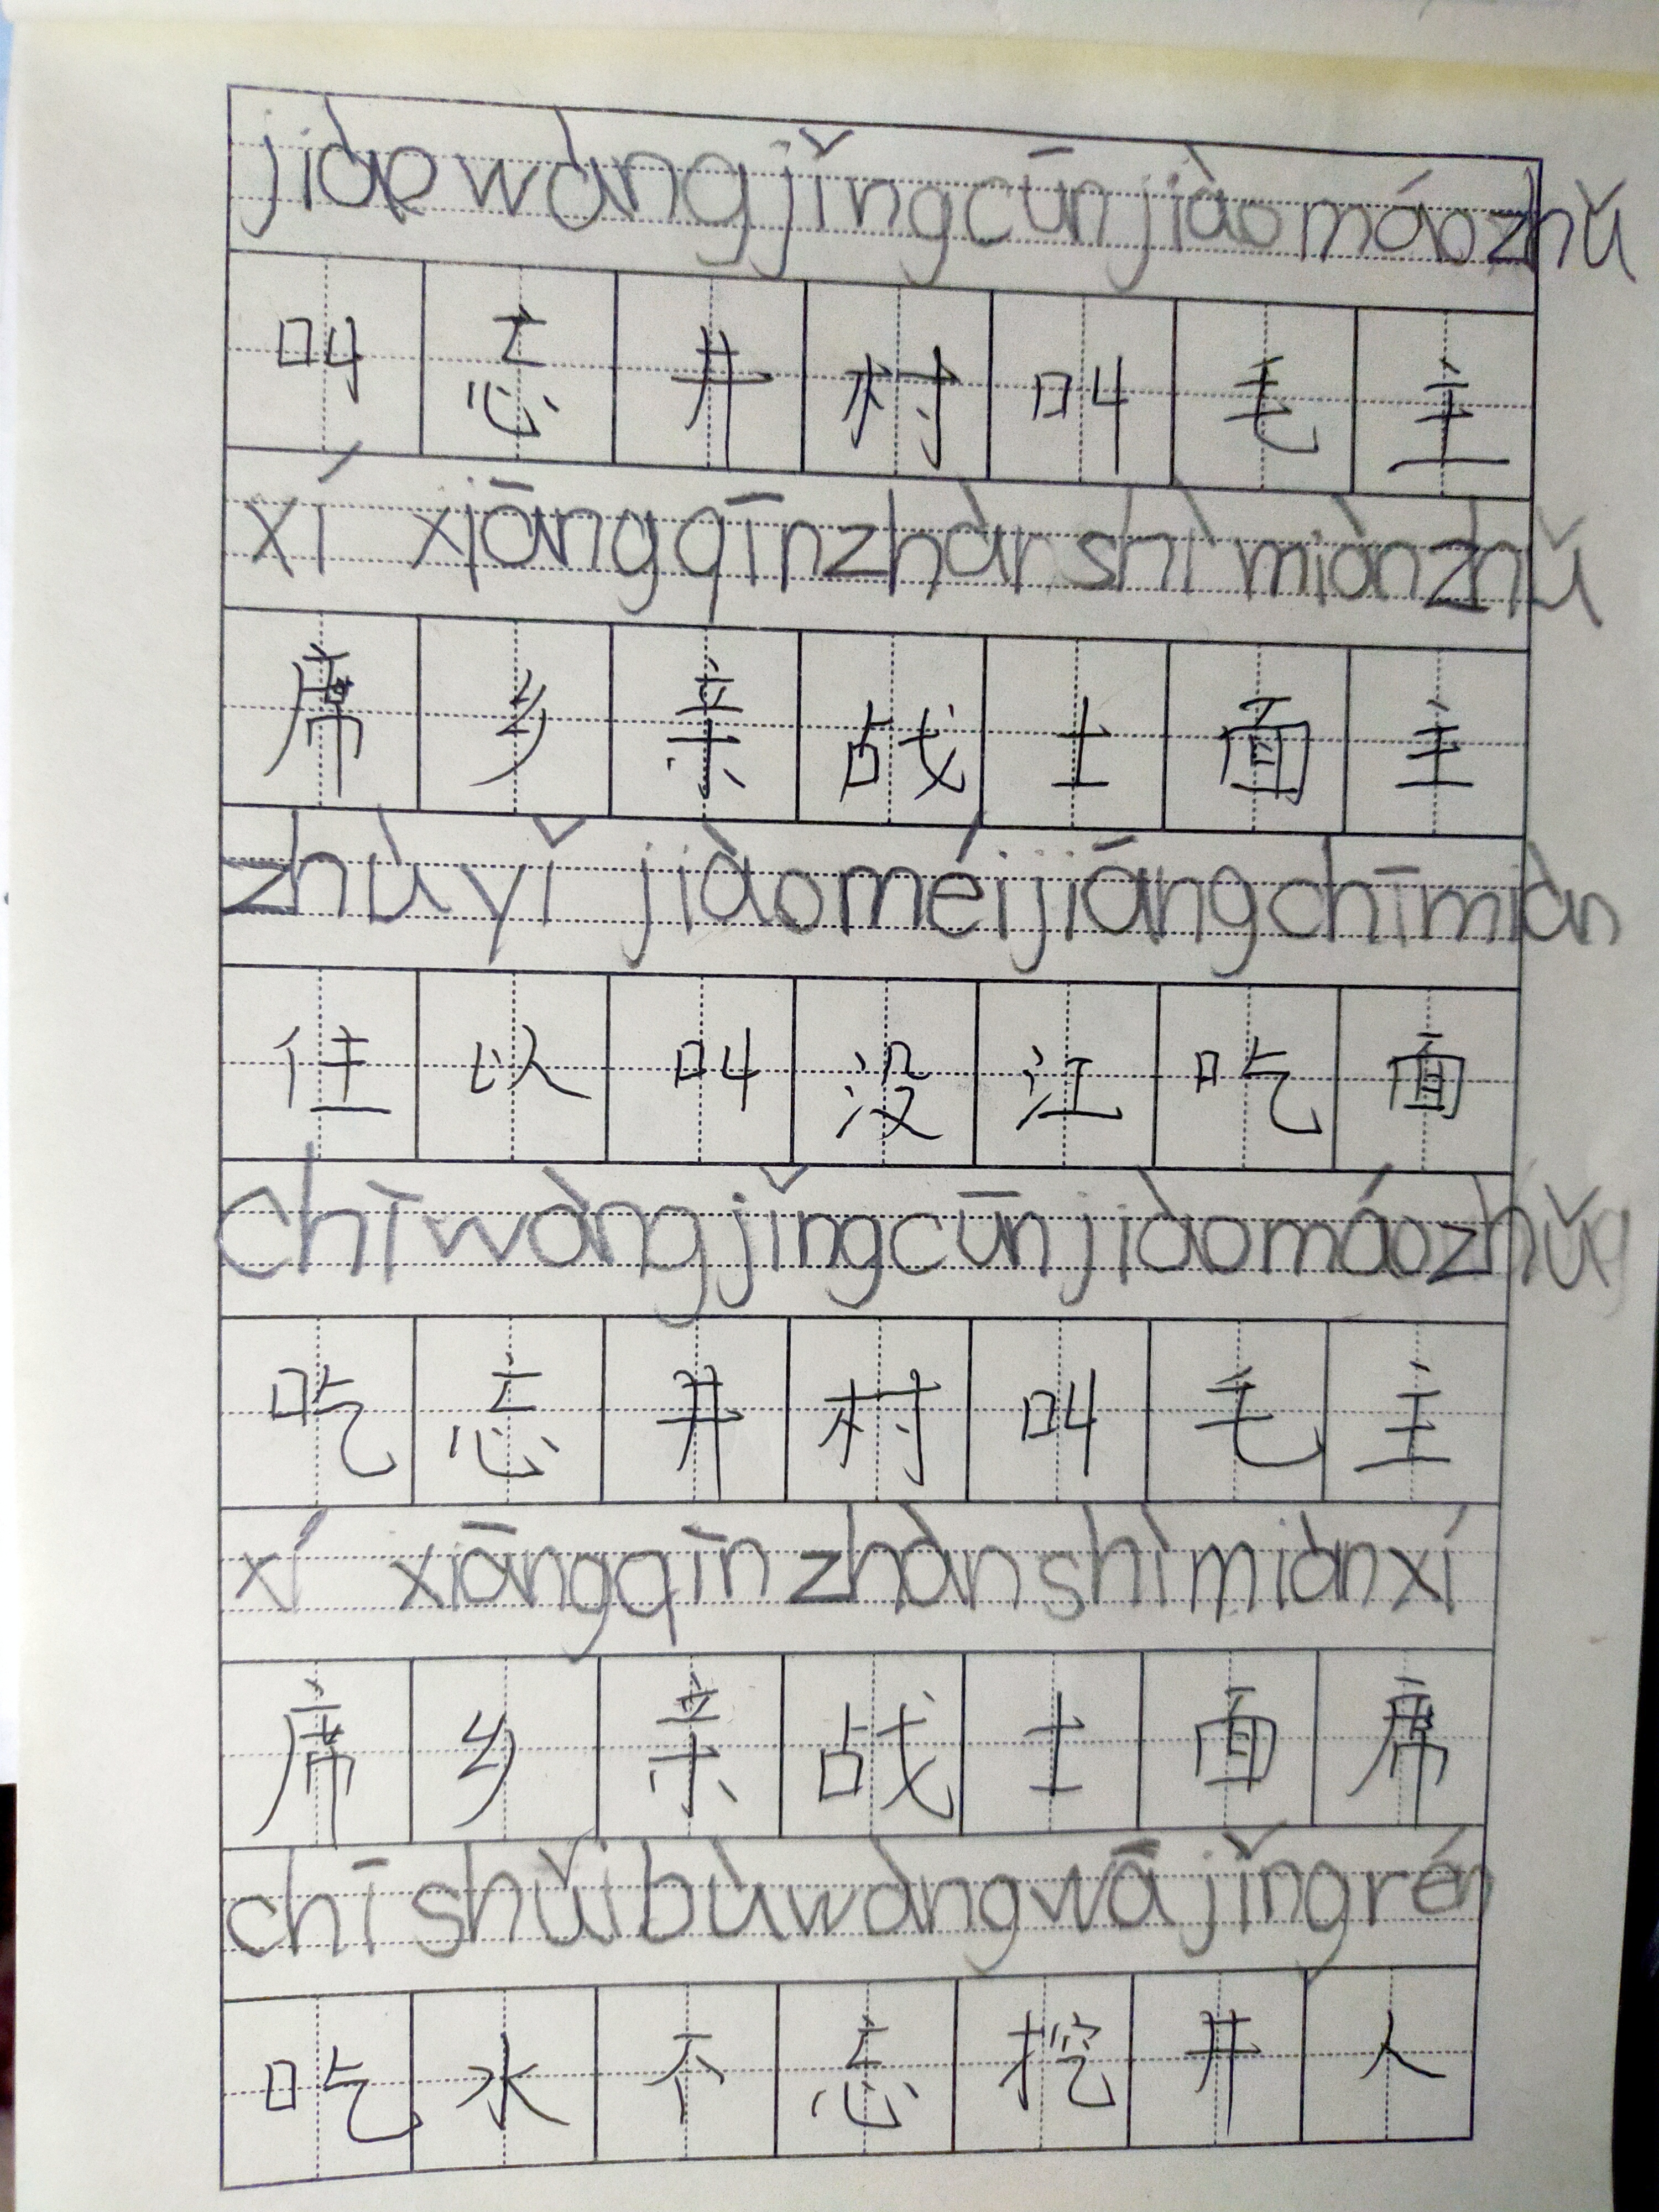 jiào wàng jǐng cūn jiào máo zhǔ
叫 忘 井 村 叫 毛 主
xí xiāng qīn zhàn shì miàn zhǔ
席 乡 亲 战 士 面 主
zhù yǐ jiào méi jiāng chī miàn
住 以 叫 没 江 吃 面
chī wàng jǐng cūn jiào máo zhǔ
吃 忘 井 村 叫 毛 主
xí xiāng qīn zhàn shì miàn xí
席 乡 亲 战 士 面 席
chī shuǐ bù wàng wā jǐng rén
吃 水 不 忘 挖 井 人